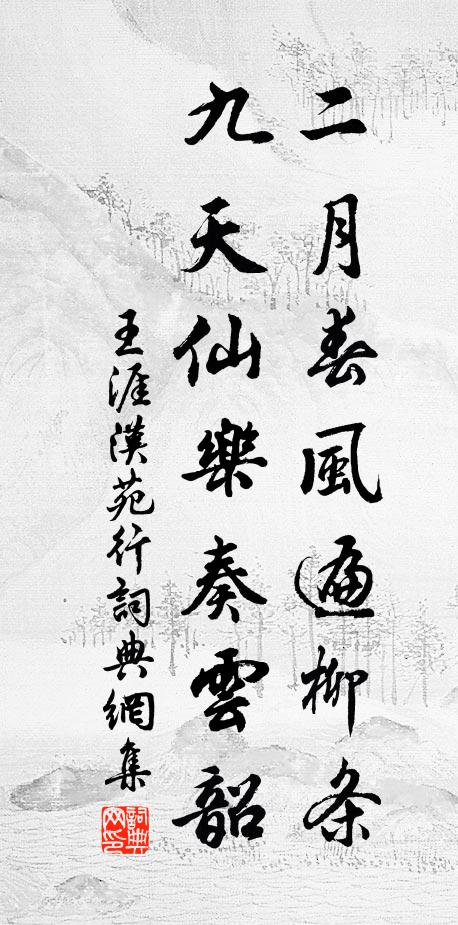 二月春風遍柳条
九天仙樂奏雲韶
王涯漢苑行詞典網集
詞典网印